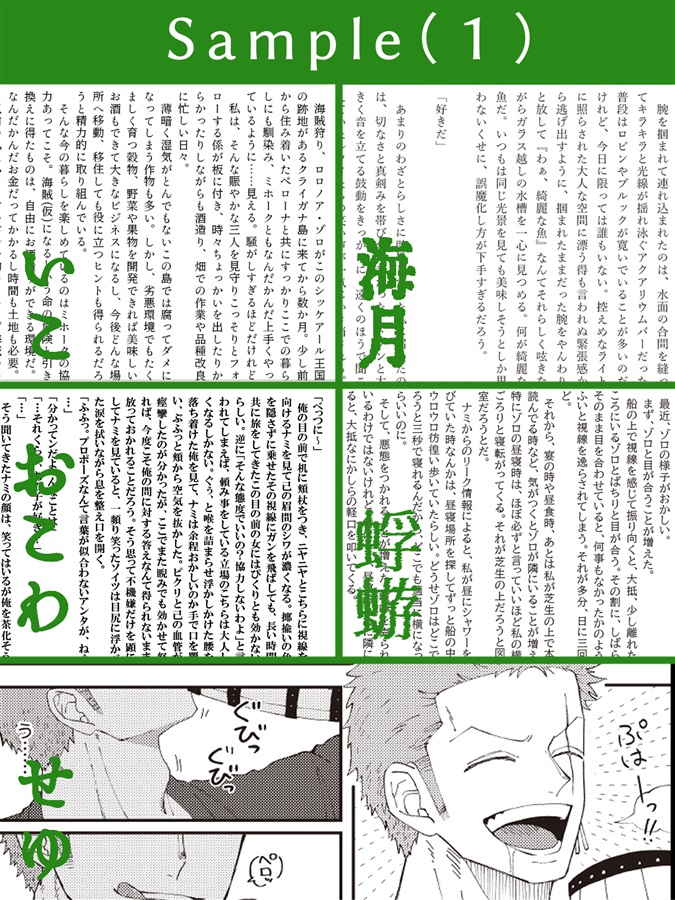 Sample(1)
腕を掴まれて連れ込まれたのは、水面の合間を縫っ
てキラキラと光線が揺れ泳ぐアクアリウムバーだっ
普段はロビンやブルックが寛いでいることが多いのだ
けれど、今日に限っては誰もいない。控えめなライト
に照らされた大人な空間に漂う得も言われぬ緊張感か
ら逃げ出すように、掴まれたままだった腕をやんわり
と放して『わぁ、綺麗な魚』なんてそれらしく呟きな
がらガラス越しの水槽を一心に見つめる。何が綺麗な
魚だ。いつもは同じ光景を見ても美味しそうとしか思
わないくせに、誤魔化し方が下手すぎるだろう。
「好きだ」
あまりのわざとらしさに
は、切なさと真剣みを帯び
きく音を立てる鼓動をきっか
海月
海賊狩り、ロロノア・ゾロがこのシッケアール王国
の跡地があるクライガナ島に来てから数か月。少し前
から住み着いたペローナと共にすっかりここでの暮ら
しにも馴染み、ミホークともなんだかんだ上手くやっ
ているように……見える。騒がしすぎるほどだけれど
私は、そんな賑やかな三人を見守りこっそりとフォ
ローする係が板に付き、時々ちょっかいを出したりか
らかったりしながらも酒造り、畑での作業や品種改良
に忙しい日々。
薄暗く湿気がとんでもないこの島では腐ってダメに
なってしまう作物も多い。しかし、劣悪環境でもたく
ましく育つ穀物、野菜や果物を開発できれば美味しい
お酒もできて大きなビジネスになるし、今後どんな場
所へ移動、移住しても役に立つヒントも得られるだろ
うと精力的に取り組んでいる。
そんな今の暮らしを楽しめているのはミホークの協
力あってこそ。海賊(仮)になる
換えに得たものは、自由にお酒
なんだかんだお金だってかかるし時間も土地も必要。
いこ
最近、ゾロの様子がおかしい。
まず、ゾロと目が合うことが増えた。
船の上で視線を感じて振り向くと、大抵、少し離れた
ころにいるゾロとばちりと目が合う。その割に、しばら
そのまま目を合わせていると、何事もなかったかのよう
ふいと視線を逸らされてしまう。それが多分、日に三回
それから、宴の時や昼食時、あとは私が芝生の上で本
読んでる時など、気がつくとゾロが隣にいることが増え
特にゾロの昼寝時は、ほぼ必ずと言っていいほど私の横
ごろりと寝転がってくる。それが芝生の上だろうと図
室だろうとだ。
ナミからのリーク情報によると、私が昼にシャワーを
びていた時なんかは、昼寝場所を探してずっと船の中
ウロウロ彷徨い歩いていたらしい。どうせゾロはどこで
ろうと三秒で寝れるんだか
らいいのに。
そして、悪態をつかれる
いるわけではないけれど
ると、大抵なにかしらの軽口を叩いてくる。
蜉蝣
『べっに～』
俺の目の前で机に頬杖をつき、ニヤニヤとこちらに視線を
向けるナミを見て己の眉間のシワが濃くなる。揶揄いの色
を隠さずに乗せたその視線にガンを飛ばしても、長い時間
共に旅をしてきたこの目の前の女にはびくりとも効かない
らしい。逆に「そんな態度でいいの?協力しないわよ」と言
われてしまえば、頼み事をしている立場のこちらは大人し
くなるしかない。ぐぅ、と喉を詰まらせ浮かしかけた腰を
落ち着けた俺を見て、ナミは余程おかしいのか手で口を覆
い、ぷふっと頬から空気を抜かした。ピクリと己の血管が
痙攣したのが分かったが、ここでまた睨みでも効かせて怒
れば、今度こそ俺の問に対する答えなんて得られないまま
放っておかれることだろう。そう思って不機嫌だけを顔に
してナミを見ていると、一頻り笑ったソイツは目尻に浮か
た涙を拭いながら息を整え口を開く。
「ふふっ。プロポーズなんて言葉が似合わないアンタが、ね
「…」
「分かってンだよ
「…それくら
「…」
そう聞いてきたナミの顔は、笑ってはいるが俺を茶化そう
おこわ
ぷはーっ!!
ぐびっ
ぐびっ
う……
ペロ
せゆ